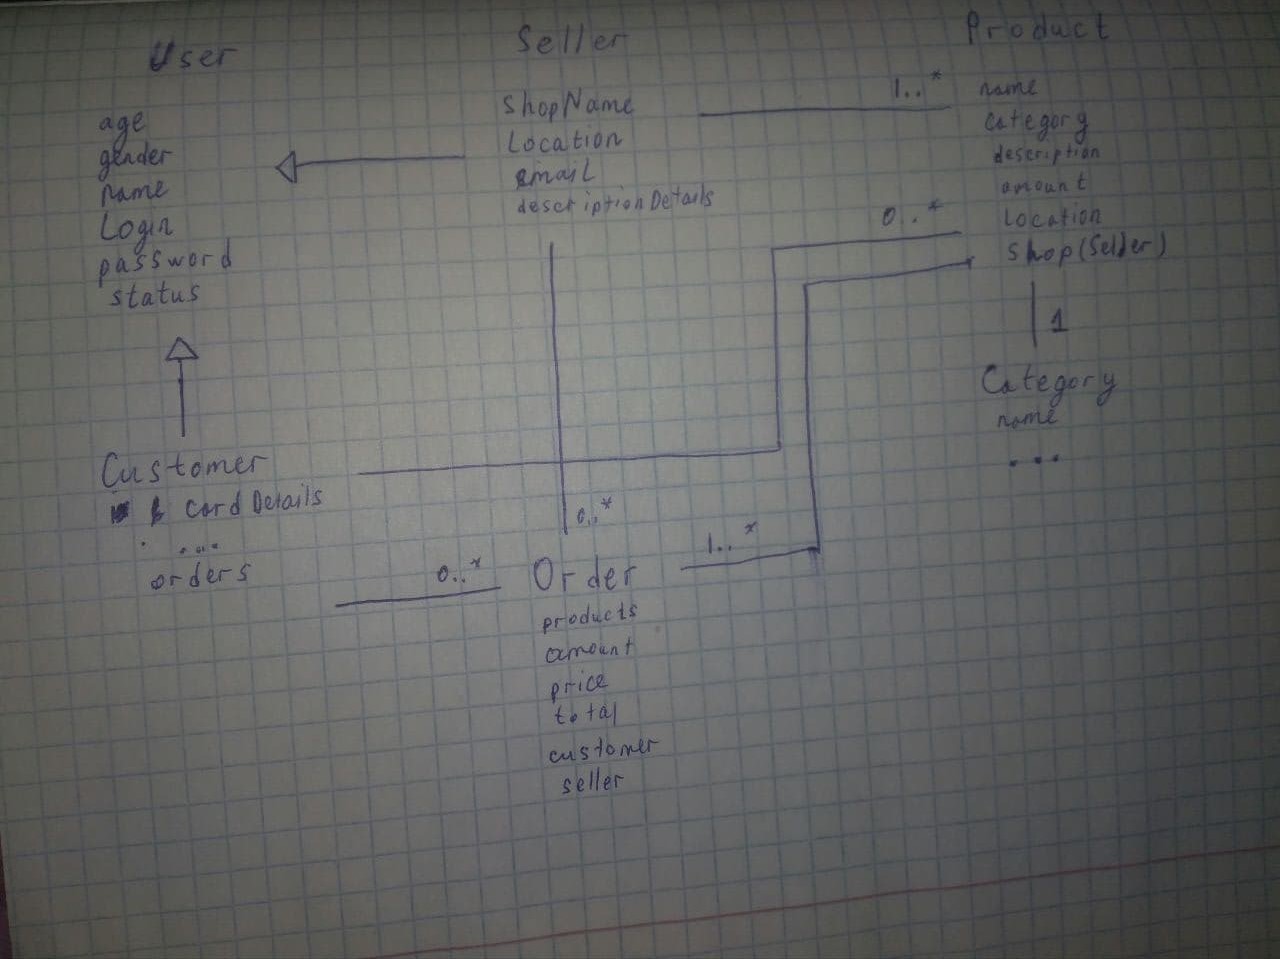 User
age
gender
name
Login
password
status
Seller
shopName
Location
email
descriptionDetails
Product
1..*
name
category
description
amount
Location
shop(Seller)
0..*
1
Category
name
...
Customer
cardDetails
...
orders
0..*
0..*
1..*
Order
products
amount
price
total
customer
seller